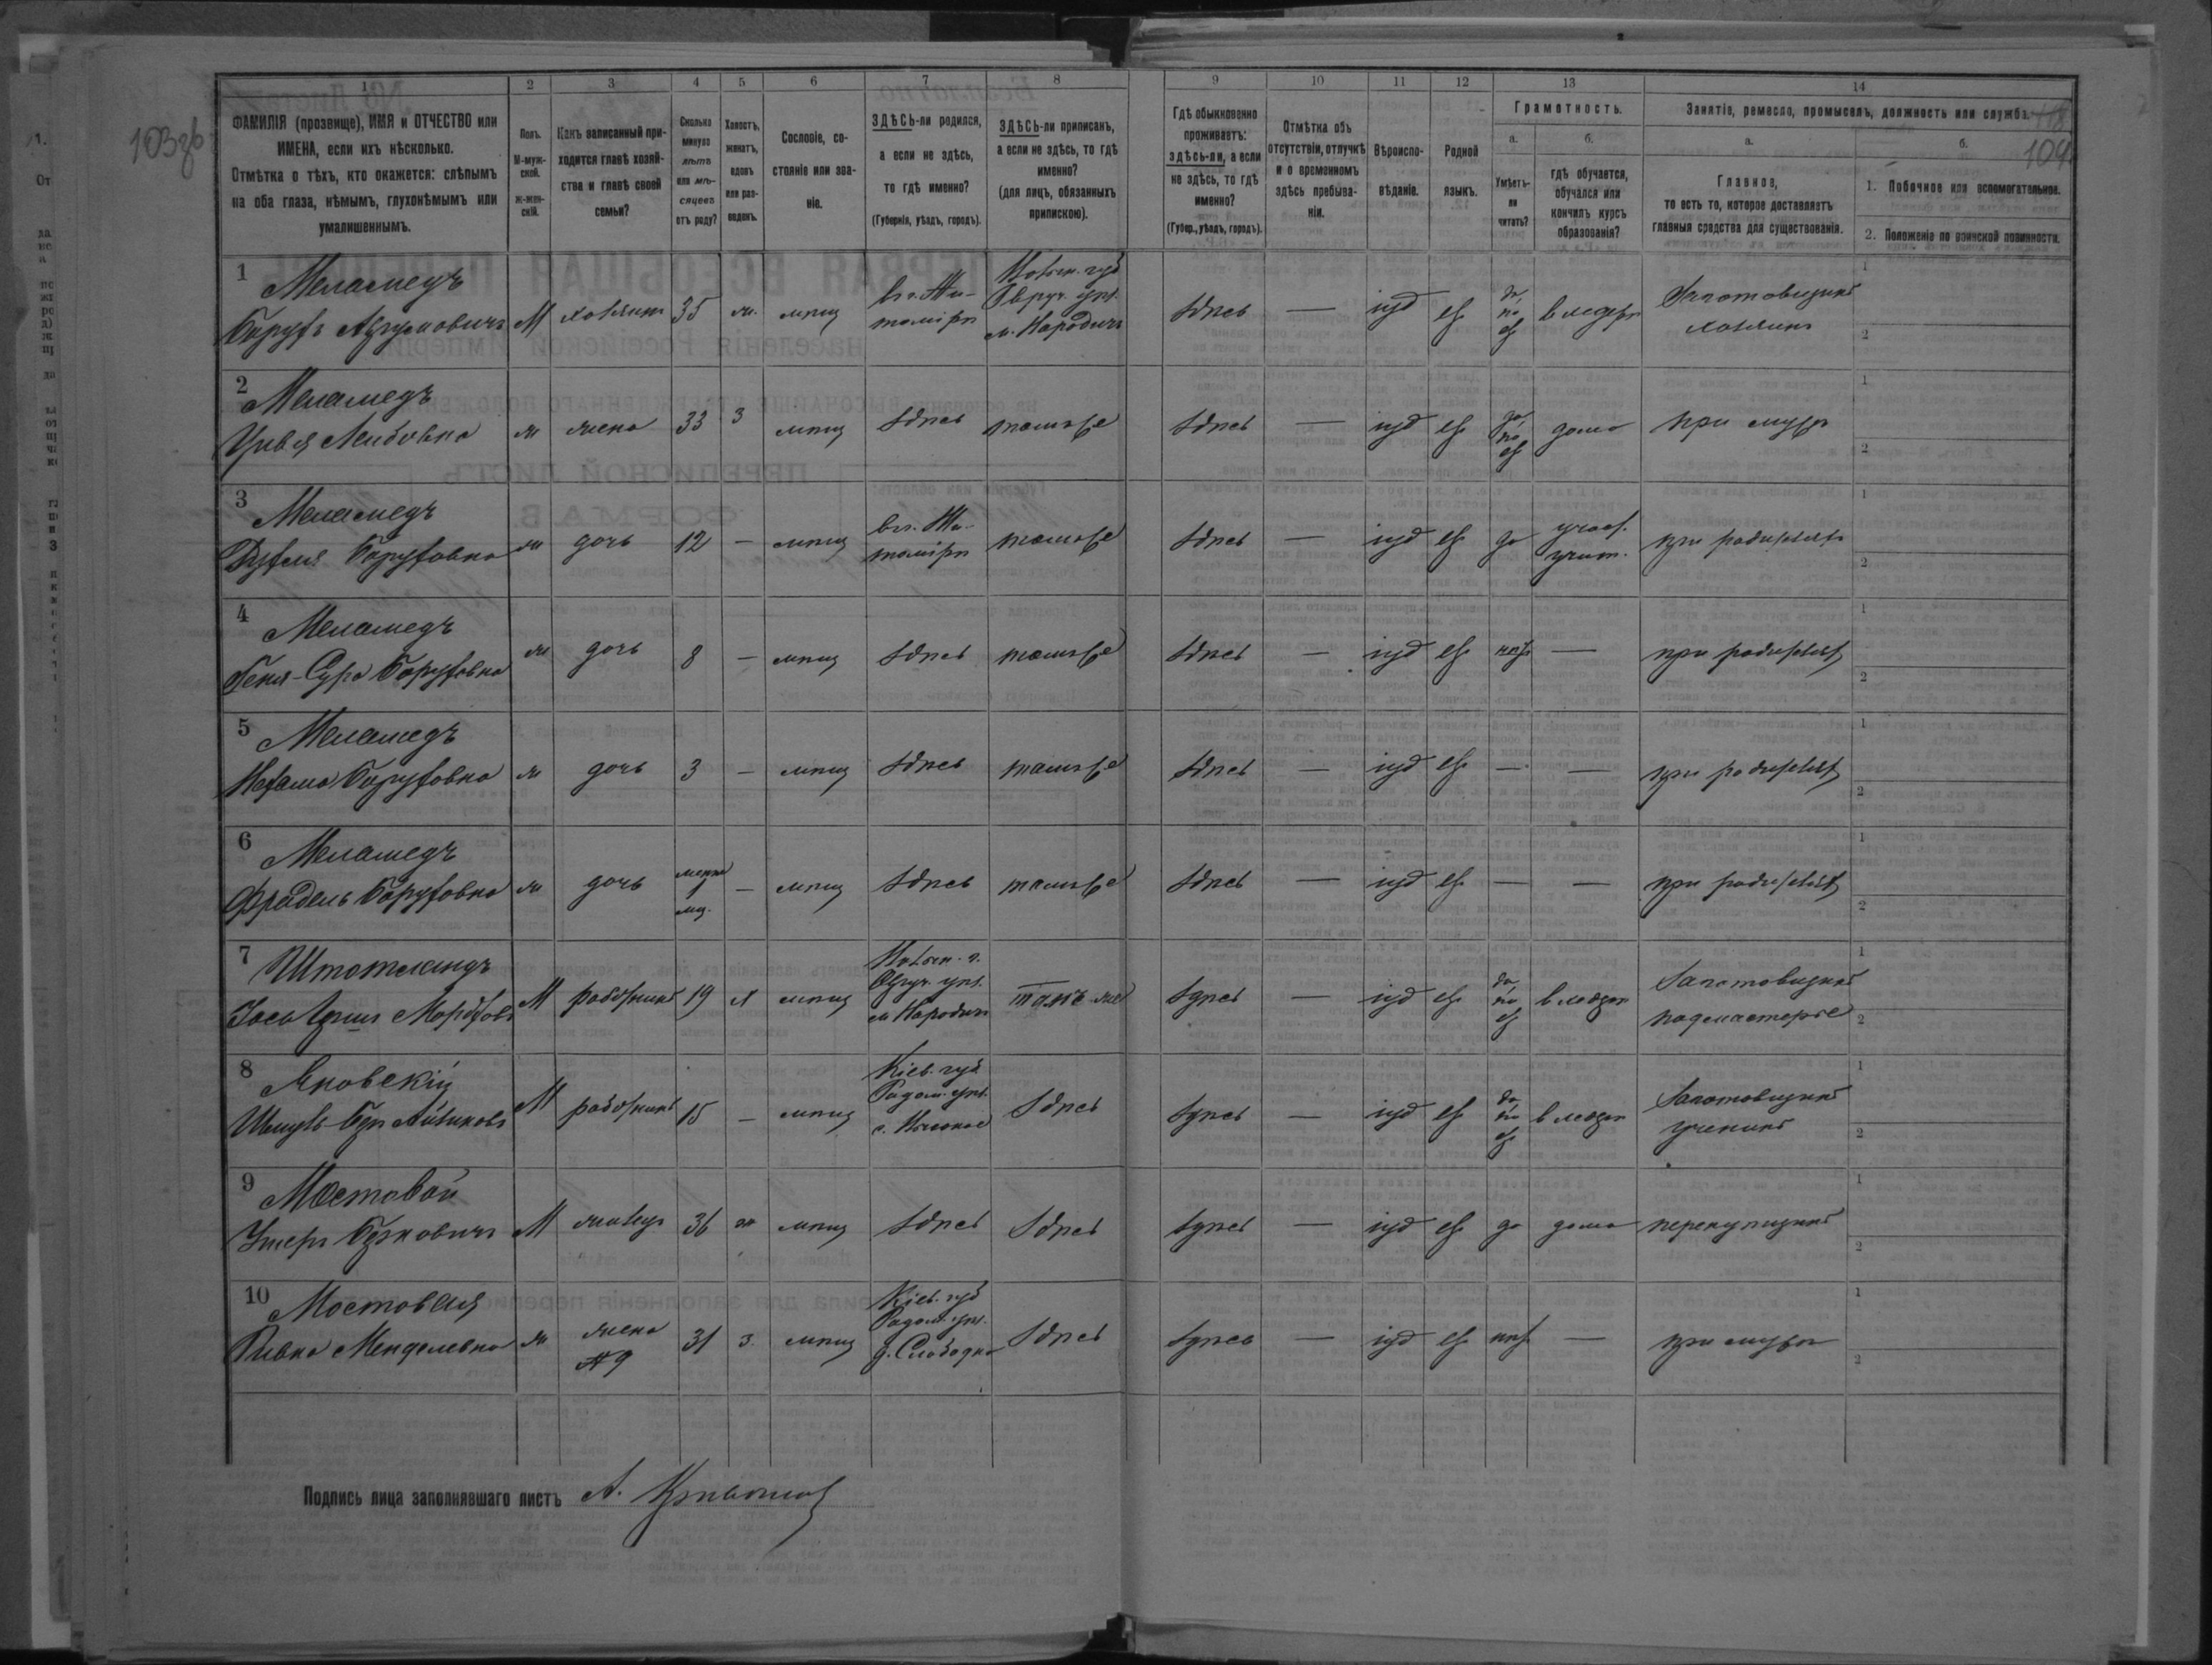 103об
1 2 3 4 5 6 7 8 9 10 11 12 13 14
ФАМИЛІЯ (прозвище), ИМЯ и ОТЧЕСТВО или
ИМЕНА, если ихъ нѣсколько.
Отмѣтка о тѣхъ, кто окажется: слѣпымъ
на оба глаза, нѣмымъ, глухонѣмымъ или
умалишеннымъ.
Полъ.
М-муж-
ской.
Ж-жен-
скій.
Какъ записанный при-
ходится главѣ хозяй-
ства и главѣ своей
семьи?
Сколько
минуло
лѣтъ
или мѣ-
сяцевъ
отъ роду?
Холостъ,
женатъ,
вдовъ
или раз-
веденъ.
Сословіе, со-
стояніе или зва-
ніе.
ЗДѢСЬ-ли родился,
а если не здѣсь,
то гдѣ именно?
(Губернія, уѣздъ, городъ).
ЗДѢСЬ-ли приписанъ,
а если не здѣсь, то гдѣ
именно?
(для лицъ, обязанныхъ
припискою).
Гдѣ обыкновенно
проживаетъ:
здѣсь-ли, а если
не здѣсь, то гдѣ
именно?
(Губер., уѣздъ, городъ).
Отмѣтка объ
отсутствіи, отлучкѣ
и о временномъ
здѣсь пребыва-
ніи.
Вѣроиспо-
вѣданіе.
Родной
языкъ.
Грамотность.
а.
Умѣетъ-
ли
читать?
б.
гдѣ обучается,
обучался или
кончилъ курсъ
образованія?
Занятіе, ремесло, промыселъ, должность или служба.
118
104
а.
Главное,
то есть то, которое доставляетъ
главныя средства для существованія.
б.
1. Побочное или вспомогательное.
2. Положеніе по воинской повинности.
1 Меламедъ
Барухъ Абрумовичъ М хозяинъ 35 ж. мѣщ
в г. Жи-
томірѣ
Волын. губ
Овруч. уѣз.
м. Народичи
здѣсь — іуд евр
да,
по
евр
в хедерѣ
Заготовщикъ
хозяинъ
1
2
2 Меламедъ
Цивья Лейбовна ж жена 33 з мѣщ здѣсь тамъ же здѣсь — іуд евр
да,
по
евр
дома при мужѣ
1
2
3 Меламедъ
Рухля Баруховна ж дочь 12 — мѣщ
в г. Жи-
томірѣ
тамъ же здѣсь — іуд евр да
част.
учит.
при родителяхъ
1
2
4 Меламедъ
Геня-Сура Баруховна ж дочь 8 — мѣщ здѣсь тамъ же здѣсь — іуд евр нѣт — при родителях
1
2
5 Меламедъ
Нехама Баруховна ж дочь 3 — мѣщ здѣсь тамъ же здѣсь — іуд евр — — при родителях
1
2
6 Меламедъ
Фрадель Баруховна ж дочь
менѣе
1
мц.
— мѣщ здѣсь тамъ же здѣсь — іуд евр — — при родителях
1
2
7 Штотландъ
М работникъ 19 х мѣщ
Волын. г.
Овруч. уѣз.
м Народичи
тамъ же здѣсь — іуд евр
да,
по
евр
в хедерѣ
Заготовщикъ
подмастерье
1
2
8 Яновскій
М работникъ 15 — мѣщ
Кіев. губ
Радом. уѣз.
здѣсь здѣсь — іуд евр
да
по
евр
в хедерѣ
Заготовщикъ
ученикъ
1
2
9 Мостовой
Ушеръ М жилец 36 ж мѣщ здѣсь здѣсь здѣсь — іуд евр да дома перекупщикъ
1
2
10 Мостовая
Ривка Менделевна ж
жена
№ 9
31 з. мѣщ
Кіев. губ
Радом. уѣз.
д. Слободка
здѣсь здѣсь — іуд евр нѣт — при мужѣ
1
2
Подпись лица заполнявшаго листъ А.